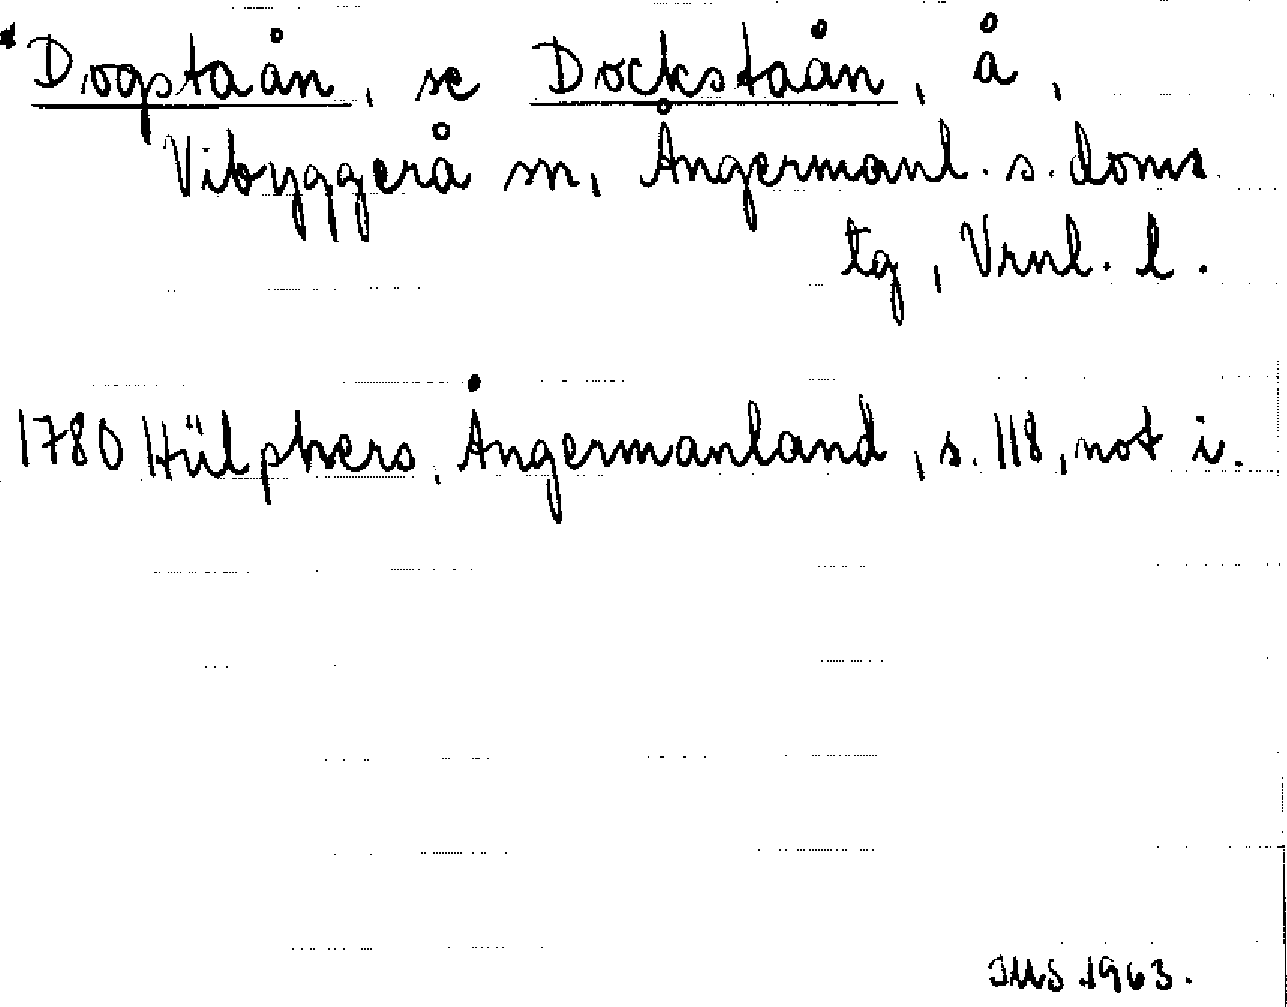 *Dogstaån, se Dockstaån, å,
Vibyggerå sn, Ångermanl. s. doms
tg, Vrnl. l.
1780 Hülphers, Ångermanland, s. 118, not i.
JMS 1963.